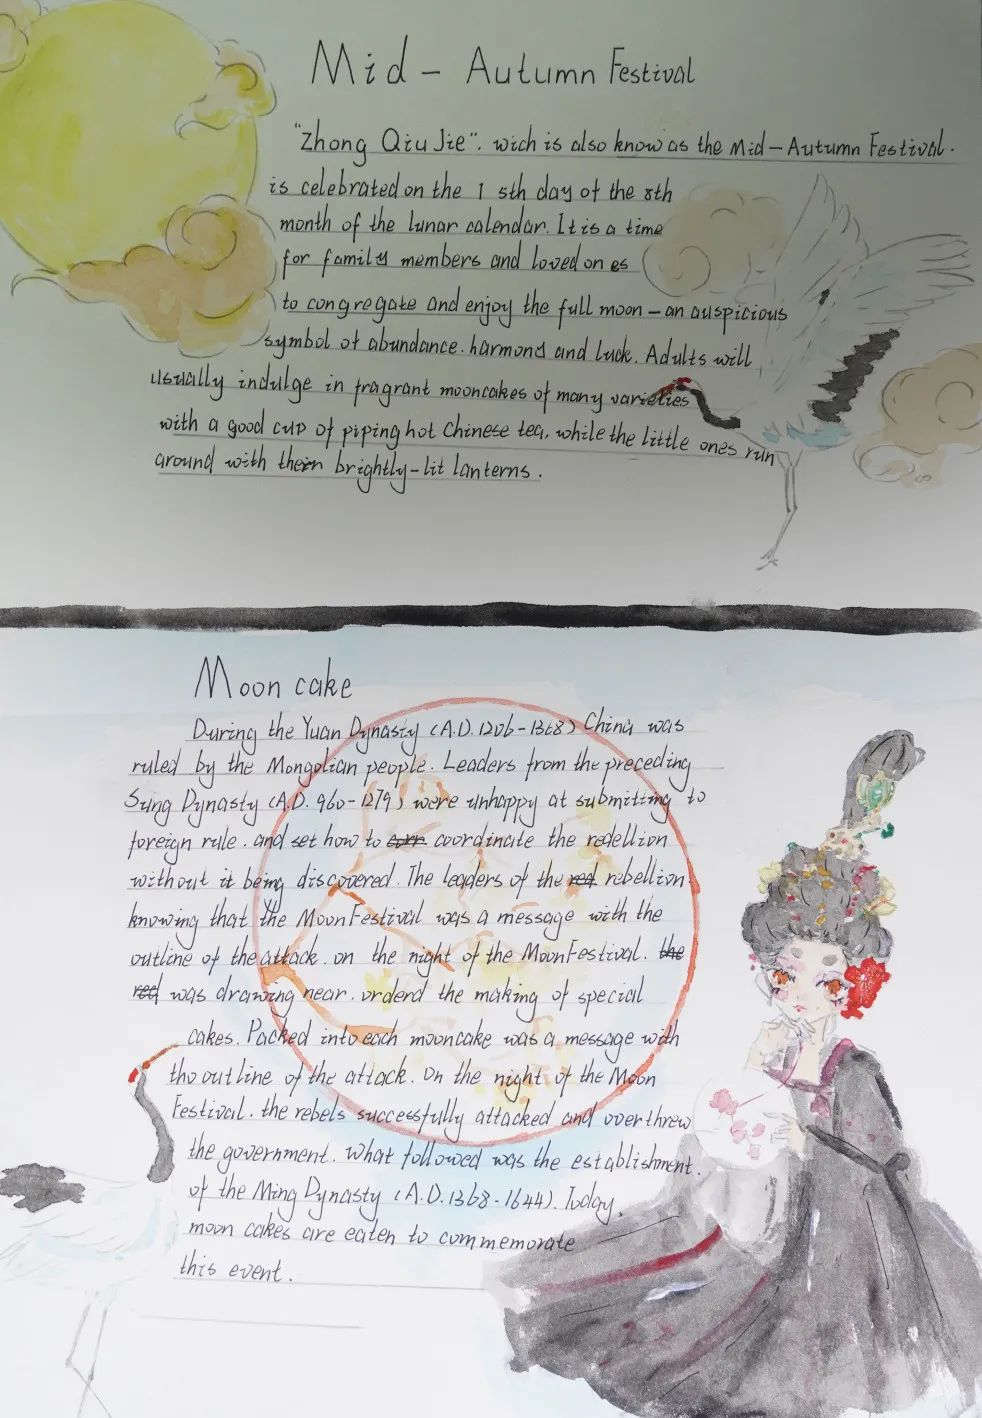 Mid - Autumn Festival
"Zhong Qiu Jie". wich is also know as the Mid-Autumn Festival.
is celebrated on the 1 5th day of the 8th
month of the lunar calendar. It is a time
for family members and loved on es
to congregate and enjoy the full moon - an auspicious
symbol of abundance. harmony and luck. Adults will
usually indulge in fragrant mooncakes of many varieties
with a good cup of piping hot Chinese tea, while the little ones run
around with their brightly-lit lanterns.
Moon cake
During the Yuan Dynasty (A.D. 1206-1368) China was
ruled by the Mongolian people. Leaders from the preceding
Sung Dynasty (A.D. 960-1279) were unhappy at submitting to
foreign rule. and set how to coordinate the redellion
without it being discovered. The leaders of the rebellion
knowing that the Moon Festival was a message with the
outline of the attack. on the night of the Moon Festival. the
red was drawing near. orderd the making of special
cakes. Packed into each mooncake was a message with
the out line of the attack. On the night of the Moon
Festival. the rebels successfully attacked and overthrew
the government. What followed was the establishment.
of the Ming Dynasty (A.D. 1368-1644). Today,
moon cakes are eaten to commemorate
this event.